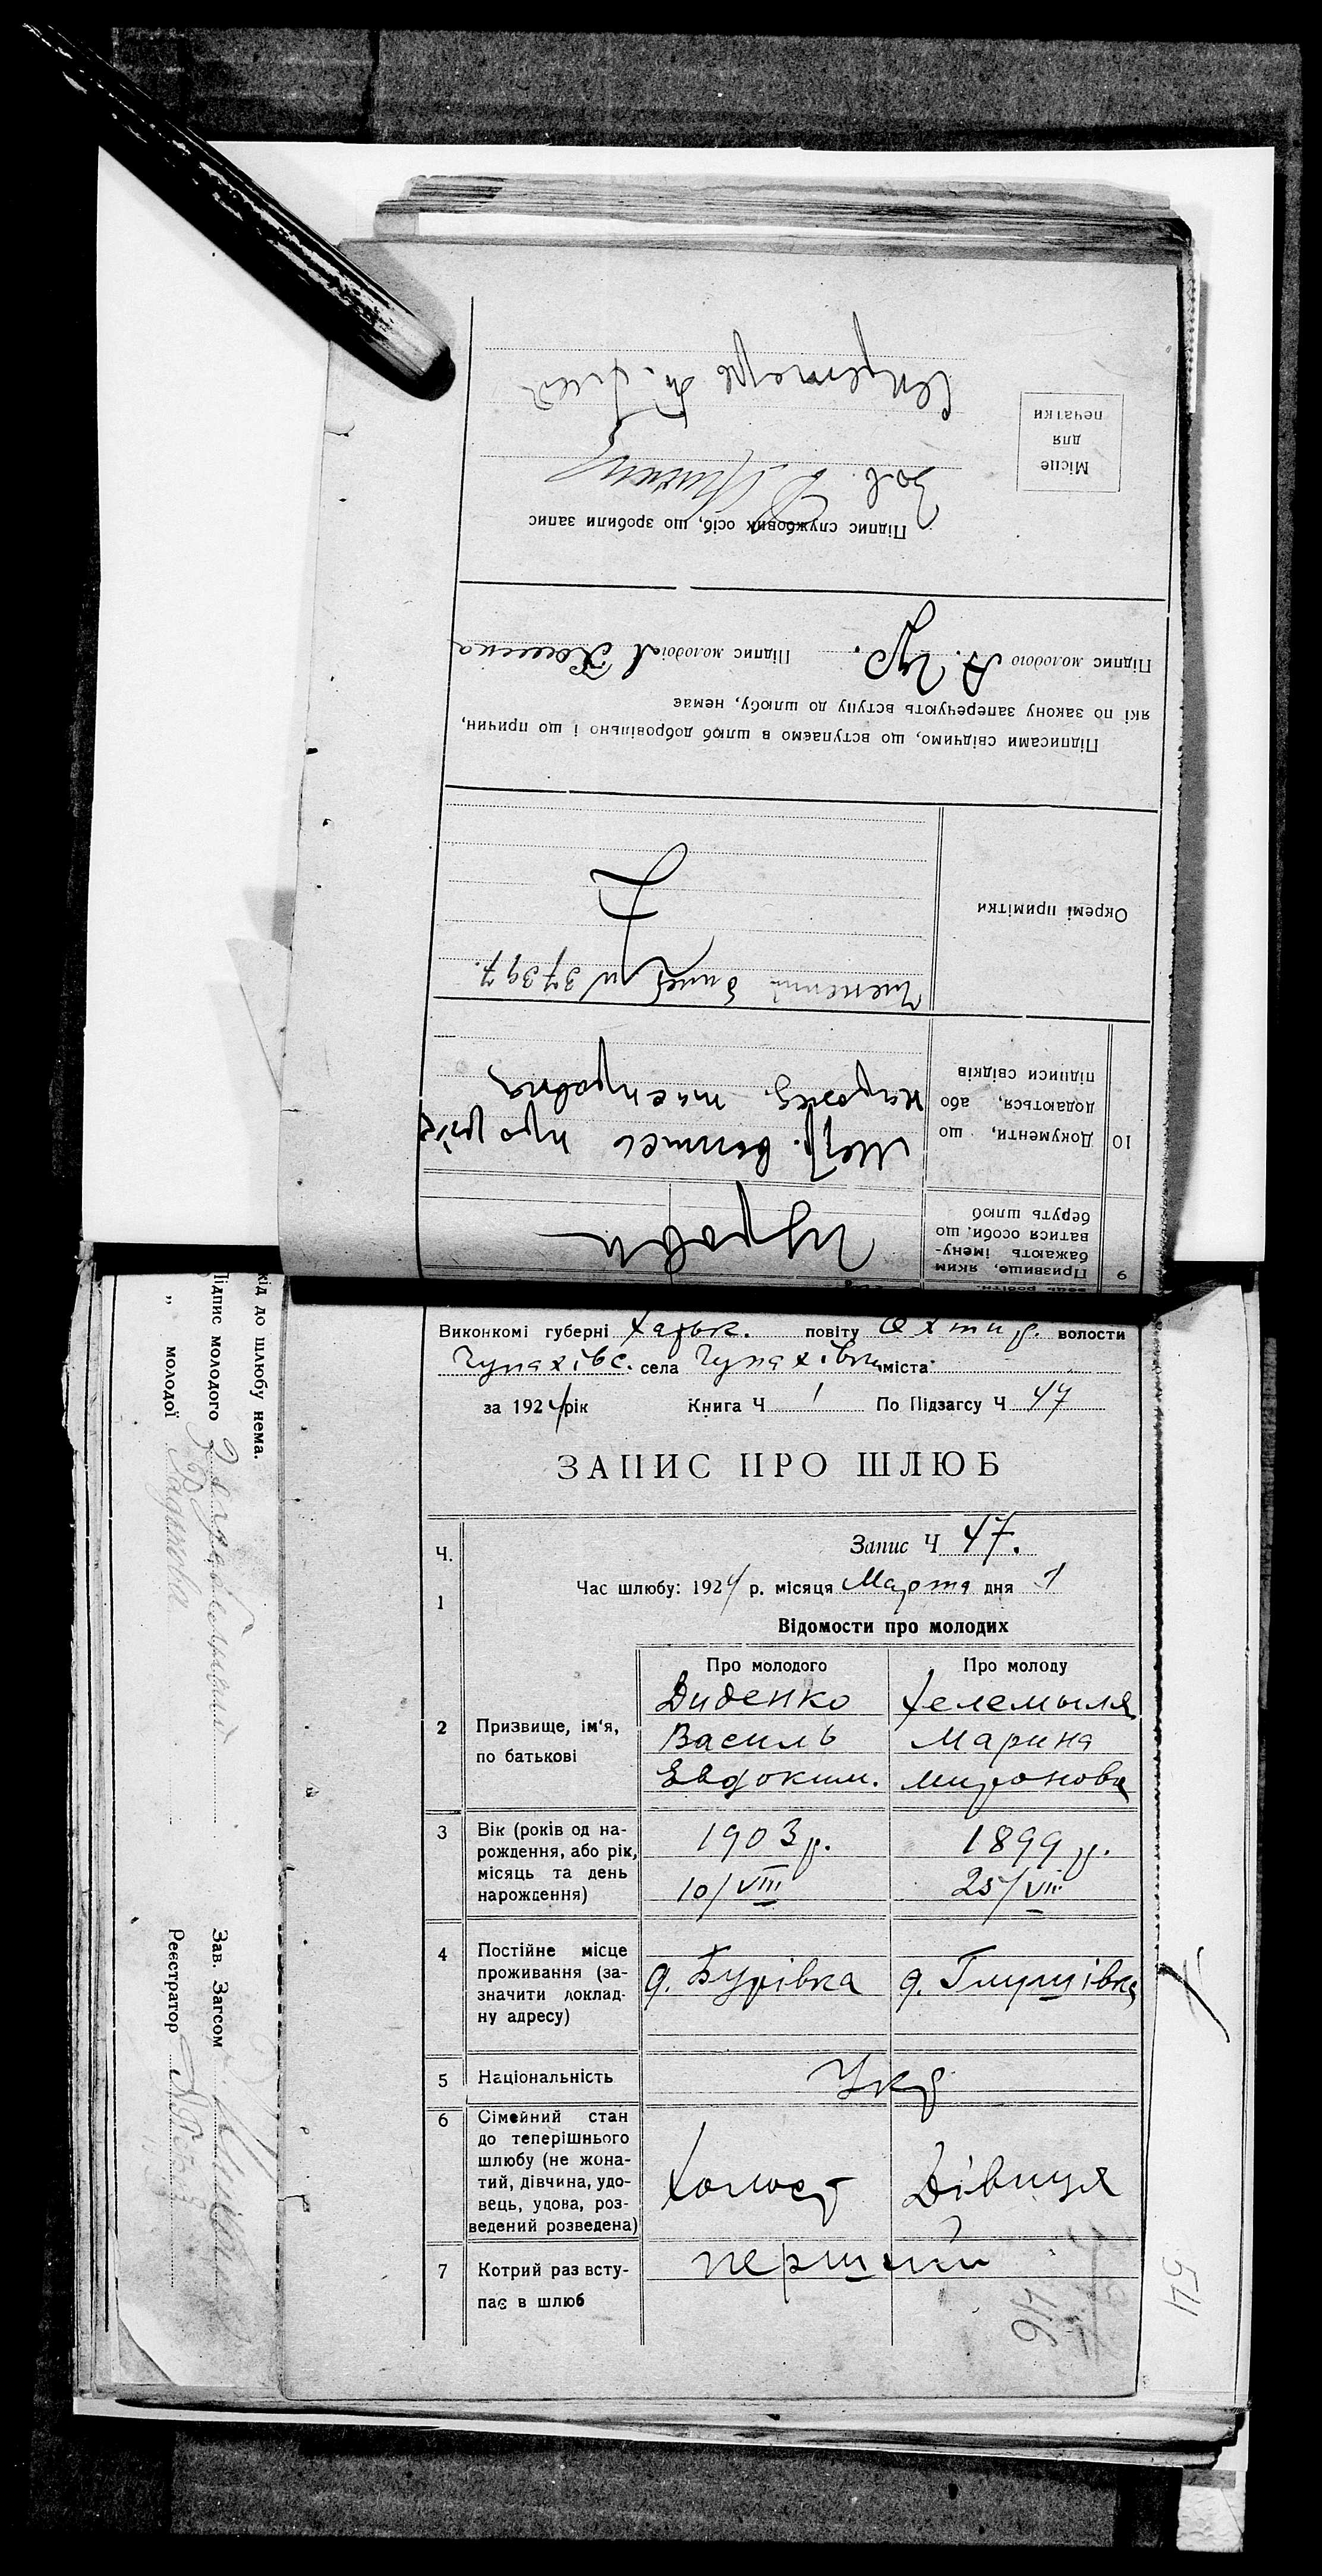 Призвище, яким
бажають імену-
ватися особи, що
беруть шлюб
9
Гурови
10
Документи, що
додаються, або
підписи свідків
Метр. випис про рік
нарожд.
Окремі примітки
білет № 37397.
Підписами свідчимо, що вступаємо в шлюб добровільно і що причин,
які по закону заперечують вступу до шлюбу, немає
Підпис молодого А. Гур. Підпис молодої
Підпис службових осіб, що зробили запис
Зав.
Секретарь
Місце
для
печатки
Виконкомі губерні Харьк. повіту Охтир. волости
Чупахівс. села Чупахівки міста
за 1924 рік Книга Ч 1 По Підзагсу Ч 47
ЗАПИС ПРО ШЛЮБ
Ч.
Запис Ч 47.
1
Час шлюбу: 1924 р. місяця Марта дня 1
Відомости про молодих
Про молодого Про молоду
2 Призвище, ім'я,
по батькові
Диденко Хелемыля
Василь Марина
Евдоким. Миронова
3 Вік (років од на-
рождення, або рік,
місяць та день
нарождення)
1903 р. 1899 р.
10/VIII 25/VIII
4 Постійне місце
проживання (за-
значити доклад-
ну адресу)
д. Бурівка д. Глушівка
5 Національність
Укр
6 Сімейний стан
до теперішнього
шлюбу (не жона-
тий, дівчина, удо-
вець, удова, роз-
ведений розведена)
Холост Дівиця
7 Котрий раз всту-
пає в шлюб
перший
46
хід до шлюбу нема.
Підпис молодого
" молодої
Зав. Загсом
Реєстратор